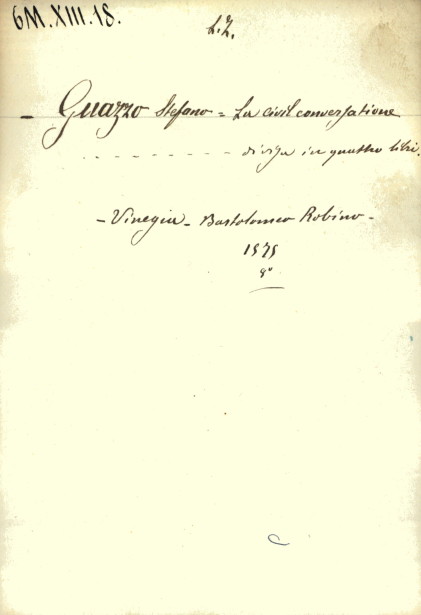 6M.XIII.18.
L.Z.
- Guazzo Stefano = La civil conversatione
- - - - - - - - - divisa in quattro libri.
- Vinegia - Bartolomeo Robino -
1575
8°